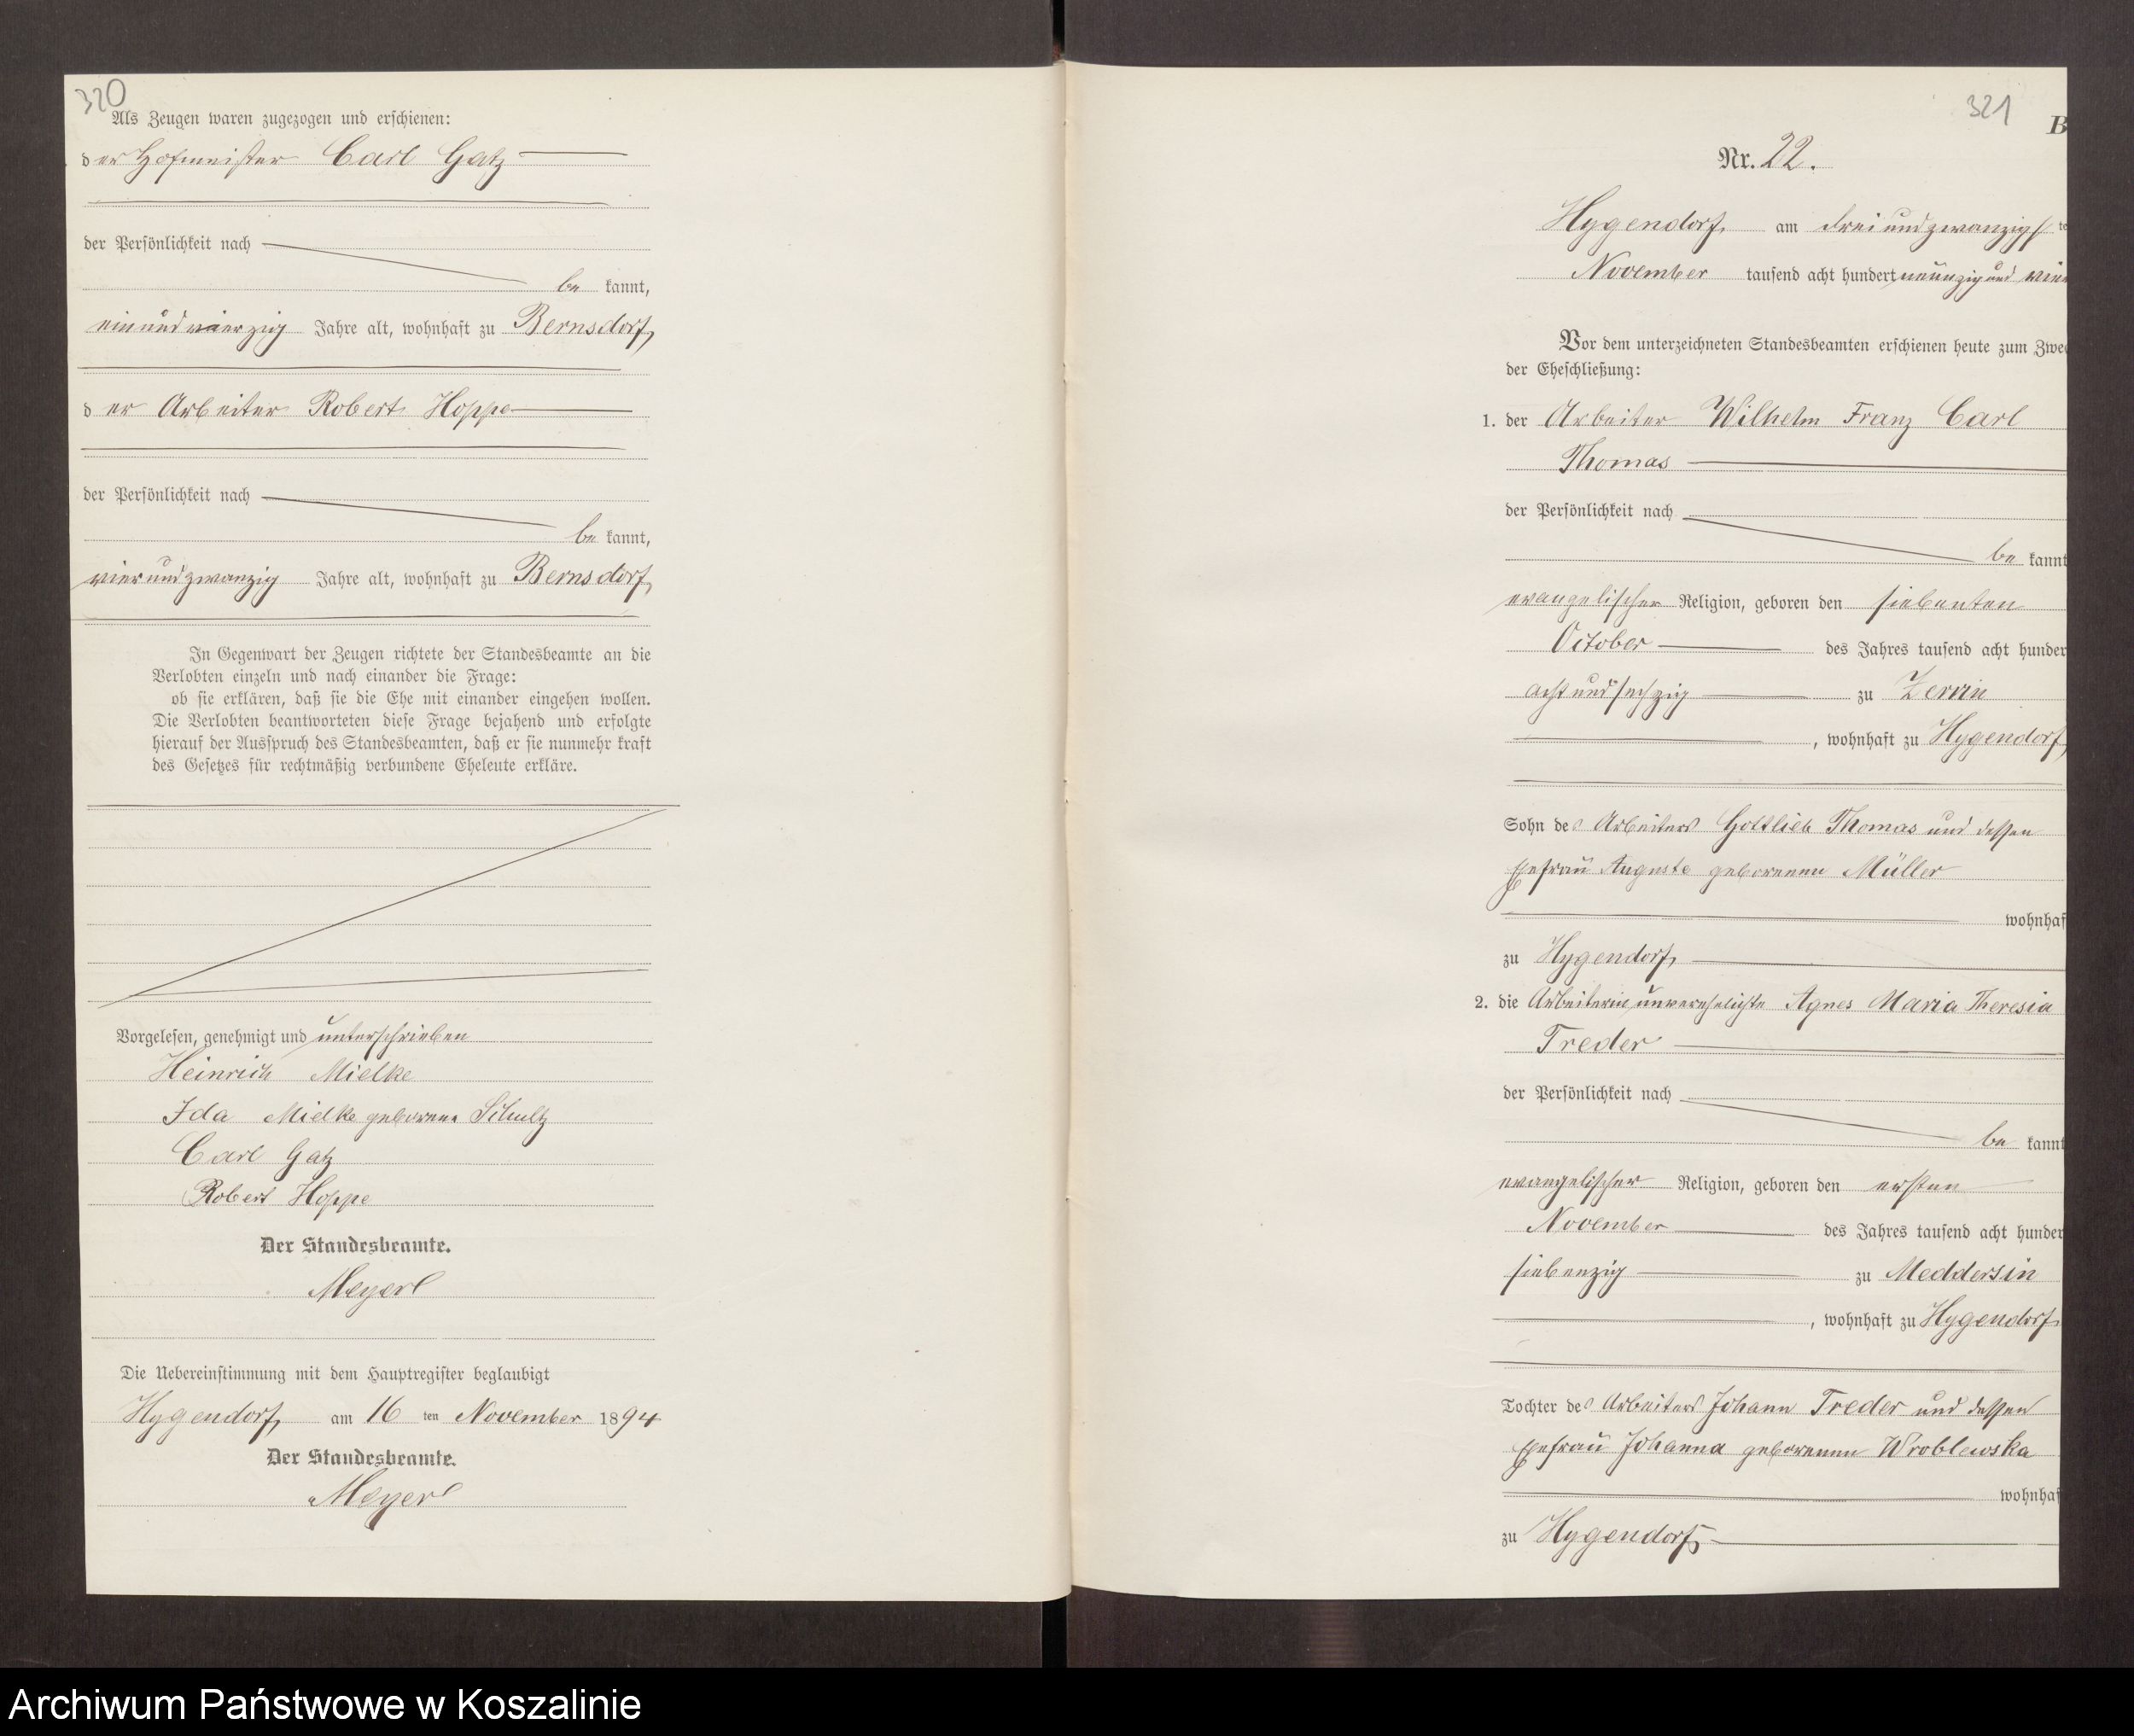 320
Als Zeugen waren zugezogen und erschienen:
der Hofmeister Carl Gatz
der Persönlichkeit nach
be kannt,
einundvierzig Jahre alt, wohnhaft zu Bernsdorf,
der Arbeiter Robert Hoppe
der Persönlichkeit nach
be kannt,
vierundzwanzig Jahre alt, wohnhaft zu Bernsdorf,
In Gegenwart der Zeugen richtete der Standesbeamte an die
Verlobten einzeln und nach einander die Frage:
ob sie erklären, daß sie die Ehe mit einander eingehen wollen.
Die Verlobten beantworteten diese Frage bejahend und erfolgte
hierauf der Ausspruch des Standesbeamten, daß er sie nunmehr kraft
des Gesetzes für rechtmäßig verbundene Eheleute erkläre.
Vorgelesen, genehmigt und unterschrieben
Heinrich Mielke
Ida Mielke geborene Schultz
Carl Gatz
Robert Hoppe
Der Standesbeamte.
Meyerl
Die Uebereinstimmung mit dem Hauptregister beglaubigt
Hygendorf, am 16 ten November 1894
Der Standesbeamte.
Meyerl
321
B
Nr. 22.
Hygendorf, am dreiundzwanzigsten
November tausend acht hundert neunzig und vier
Vor dem unterzeichneten Standesbeamten erschienen heute zum Zwec
der Eheschließung:
1. der Arbeiter Wilhelm Franz Carl
Thomas
der Persönlichkeit nach
be kannt
evangelischer Religion, geboren den siebenten
October des Jahres tausend acht hunder
acht und sechzig zu Zerrin
, wohnhaft zu Hygendorf,
Sohn des Arbeiters Gottlieb Thomas und dessen
Ehefrau Auguste geborenen Müller
wohnhaf
zu Hygendorf,
2. die Arbeiterin unverehelichte Agnes Maria Theresia
Treder
der Persönlichkeit nach
be kannt
evangelischer Religion, geboren den ersten
November des Jahres tausend acht hunder
siebenzig zu Meddersin
, wohnhaft zu Hygendorf,
Tochter des Arbeiters Johann Treder und dessen
Ehefrau Johanna geborenen Wroblewska
wohnhaf
zu Hygendorf,
Archiwum Państwowe w Koszalinie